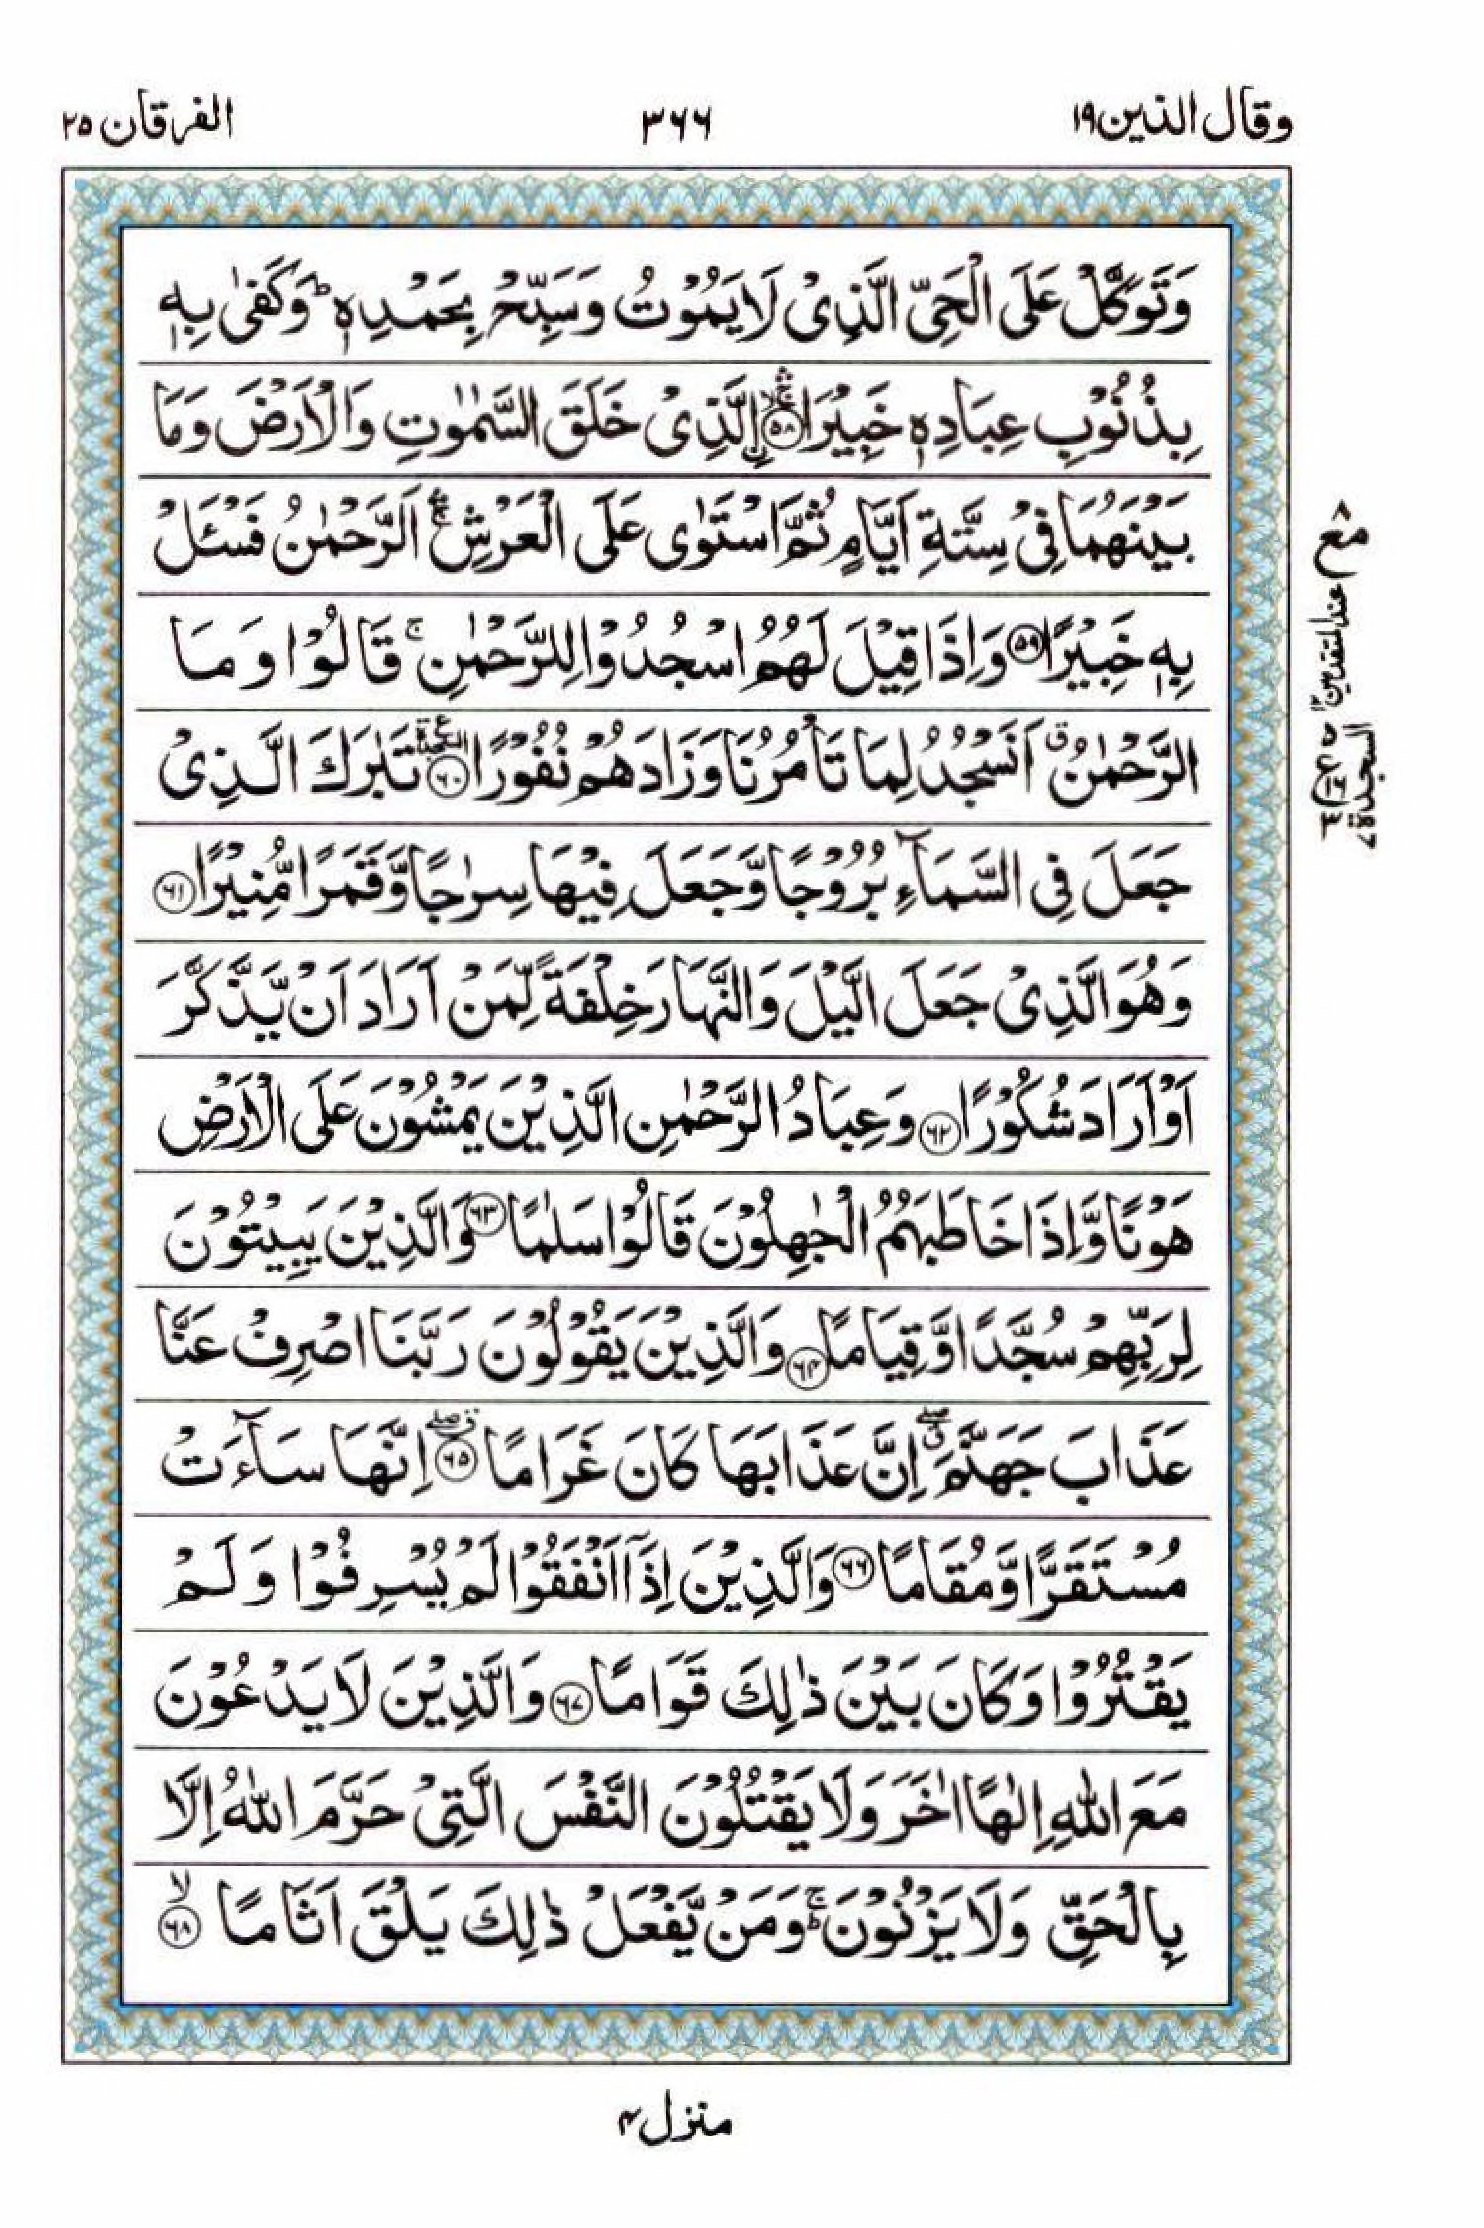 وقال الذين ١٩
٣٦٦
الفرقان ٢٥
وَتَوَكَّلْ عَلَى الْحَيِّ الَّذِيْ لَا يَمُوْتُ وَسَبِّحْ بِحَمْدِهٖ ؕ وَكَفٰى بِهٖ
بِذُنُوْبِ عِبَادِهٖ خَبِيْرَا ۛۚۙ ﴿٥٨﴾ اِۨلَّذِيْ خَلَقَ السَّمٰوٰتِ وَالْاَرْضَ وَمَا
بَيْنَهُمَا فِيْ سِتَّةِ اَيَّامٍ ثُمَّ اسْتَوٰى عَلَى الْعَرْشِ ۛۚ اَلرَّحْمٰنُ فَسْـَٔلْ
بِهٖ خَبِيْرًا ﴿٥٩﴾ وَاِذَا قِيْلَ لَهُمُ اسْجُدُوْا لِلرَّحْمٰنِ ۚ قَالُوْا وَمَا
الرَّحْمٰنُ ۗ اَنَسْجُدُ لِمَا تَاْمُرُنَا وَزَادَهُمْ نُفُوْرًا ﴿٦٠﴾ السجدة تَبٰرَكَ الَّذِيْ
جَعَلَ فِي السَّمَآءِ بُرُوْجًا وَّجَعَلَ فِيْهَا سِرٰجًا وَّقَمَرًا مُّنِيْرًا ﴿٦١﴾
وَهُوَ الَّذِيْ جَعَلَ الَّيْلَ وَالنَّهَارَ خِلْفَةً لِّمَنْ اَرَادَ اَنْ يَّذَّكَّرَ
اَوْ اَرَادَ شُكُوْرًا ﴿٦٢﴾ وَعِبَادُ الرَّحْمٰنِ الَّذِيْنَ يَمْشُوْنَ عَلَى الْاَرْضِ
هَوْنًا وَّاِذَا خَاطَبَهُمُ الْجٰهِلُوْنَ قَالُوْا سَلٰمًا ﴿٦٣﴾ وَالَّذِيْنَ يَبِيْتُوْنَ
لِرَبِّهِمْ سُجَّدًا وَّقِيَامًا ﴿٦٤﴾ وَالَّذِيْنَ يَقُوْلُوْنَ رَبَّنَا اصْرِفْ عَنَّا
عَذَابَ جَهَنَّمَ ۖ ۗ اِنَّ عَذَابَهَا كَانَ غَرَامًا ﴿٦٥﴾ ۖ اِنَّهَا سَآءَتْ
مُسْتَقَرًّا وَّمُقَامًا ﴿٦٦﴾ وَالَّذِيْنَ اِذَآ اَنْفَقُوْا لَمْ يُسْرِفُوْا وَلَمْ
يَقْتُرُوْا وَكَانَ بَيْنَ ذٰلِكَ قَوَامًا ﴿٦٧﴾ وَالَّذِيْنَ لَا يَدْعُوْنَ
مَعَ اللّٰهِ اِلٰهًا اٰخَرَ وَلَا يَقْتُلُوْنَ النَّفْسَ الَّتِيْ حَرَّمَ اللّٰهُ اِلَّا
بِالْحَقِّ وَلَا يَزْنُوْنَ ۚؕ وَمَنْ يَّفْعَلْ ذٰلِكَ يَلْقَ اَثَامًا ۙ ﴿٦٨﴾
مع ٨
عند المتقدمين ١٢
السجدة ٧
منزل ٤